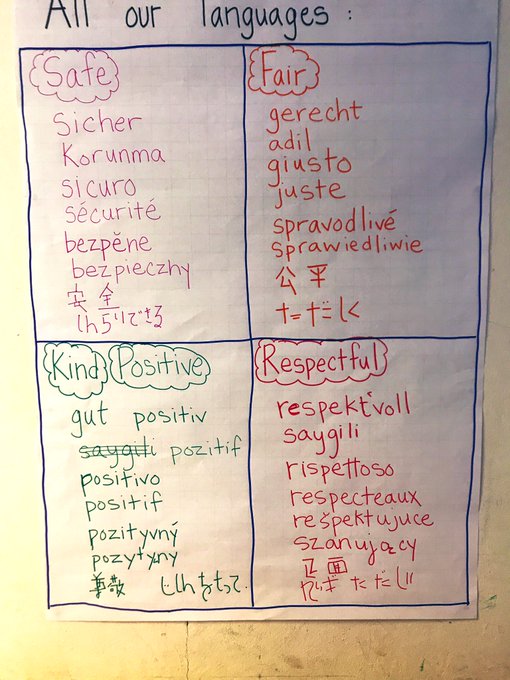 All our languages:
Safe
sicher
Korunma
sicuro
sécurité
bezpěne
bezpieczny
安全
Fair
gerecht
adil
giusto
juste
spravodlivé
sprawiedliwie
公平
ただしく
Kind Positive
gut positiv
saygili pozitif
positivo
positif
pozityvný
pozytyny
尊敬
Respectful
respektvoll
saygili
rispettoso
respecteaux
rešpektujuce
szanujący
正面